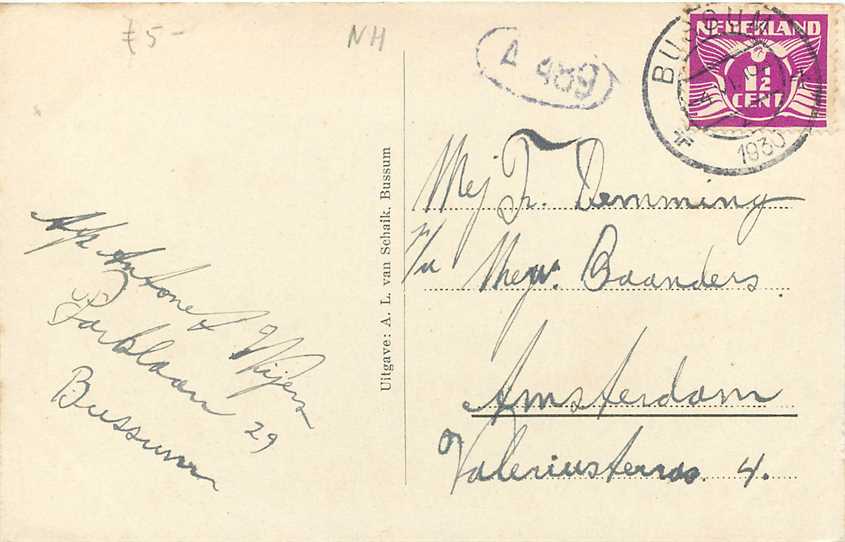 £5-
NH
A 489
BUSSUM
1930
NEDERLAND
1½
CENT
Afz Antonet Weijers
Parklaan 29
Bussum
Uitgave: A. L. van Schaik, Bussum
Mej Fr. Demming
p/a Mevr. Baanders.
Amsterdam
Valeriusterras. 4.